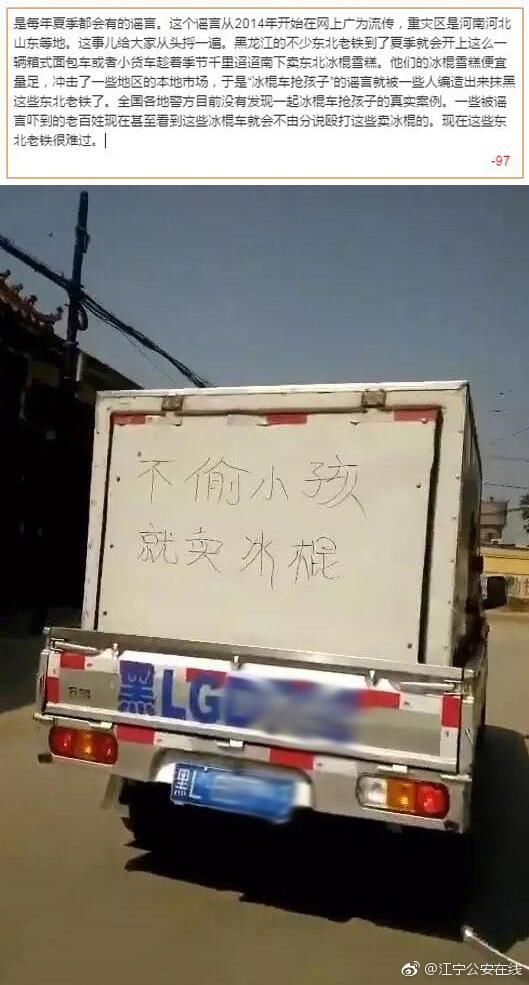 是每年夏季都会有的谣言。这个谣言从2014年开始在网上广为流传，重灾区是河南河北
山东等地。这事儿给大家从头捋一遍。黑龙江的不少东北老铁到了夏季就会开上这么一
辆箱式面包车或者小货车趁着季节千里迢迢南下卖东北冰棍雪糕。他们的冰棍雪糕便宜
量足，冲击了一些地区的本地市场，于是“冰棍车抢孩子”的谣言就被一些人编造出来抹黑
这些东北老铁了。全国各地警方目前没有发现一起冰棍车抢孩子的真实案例。一些被谣
言吓到的老百姓现在甚至看到这些冰棍车就会不由分说殴打这些卖冰棍的。现在这些东
北老铁很难过。
-97
不偷小孩
就卖冰棍
黑LGD
黑L
@江宁公安在线